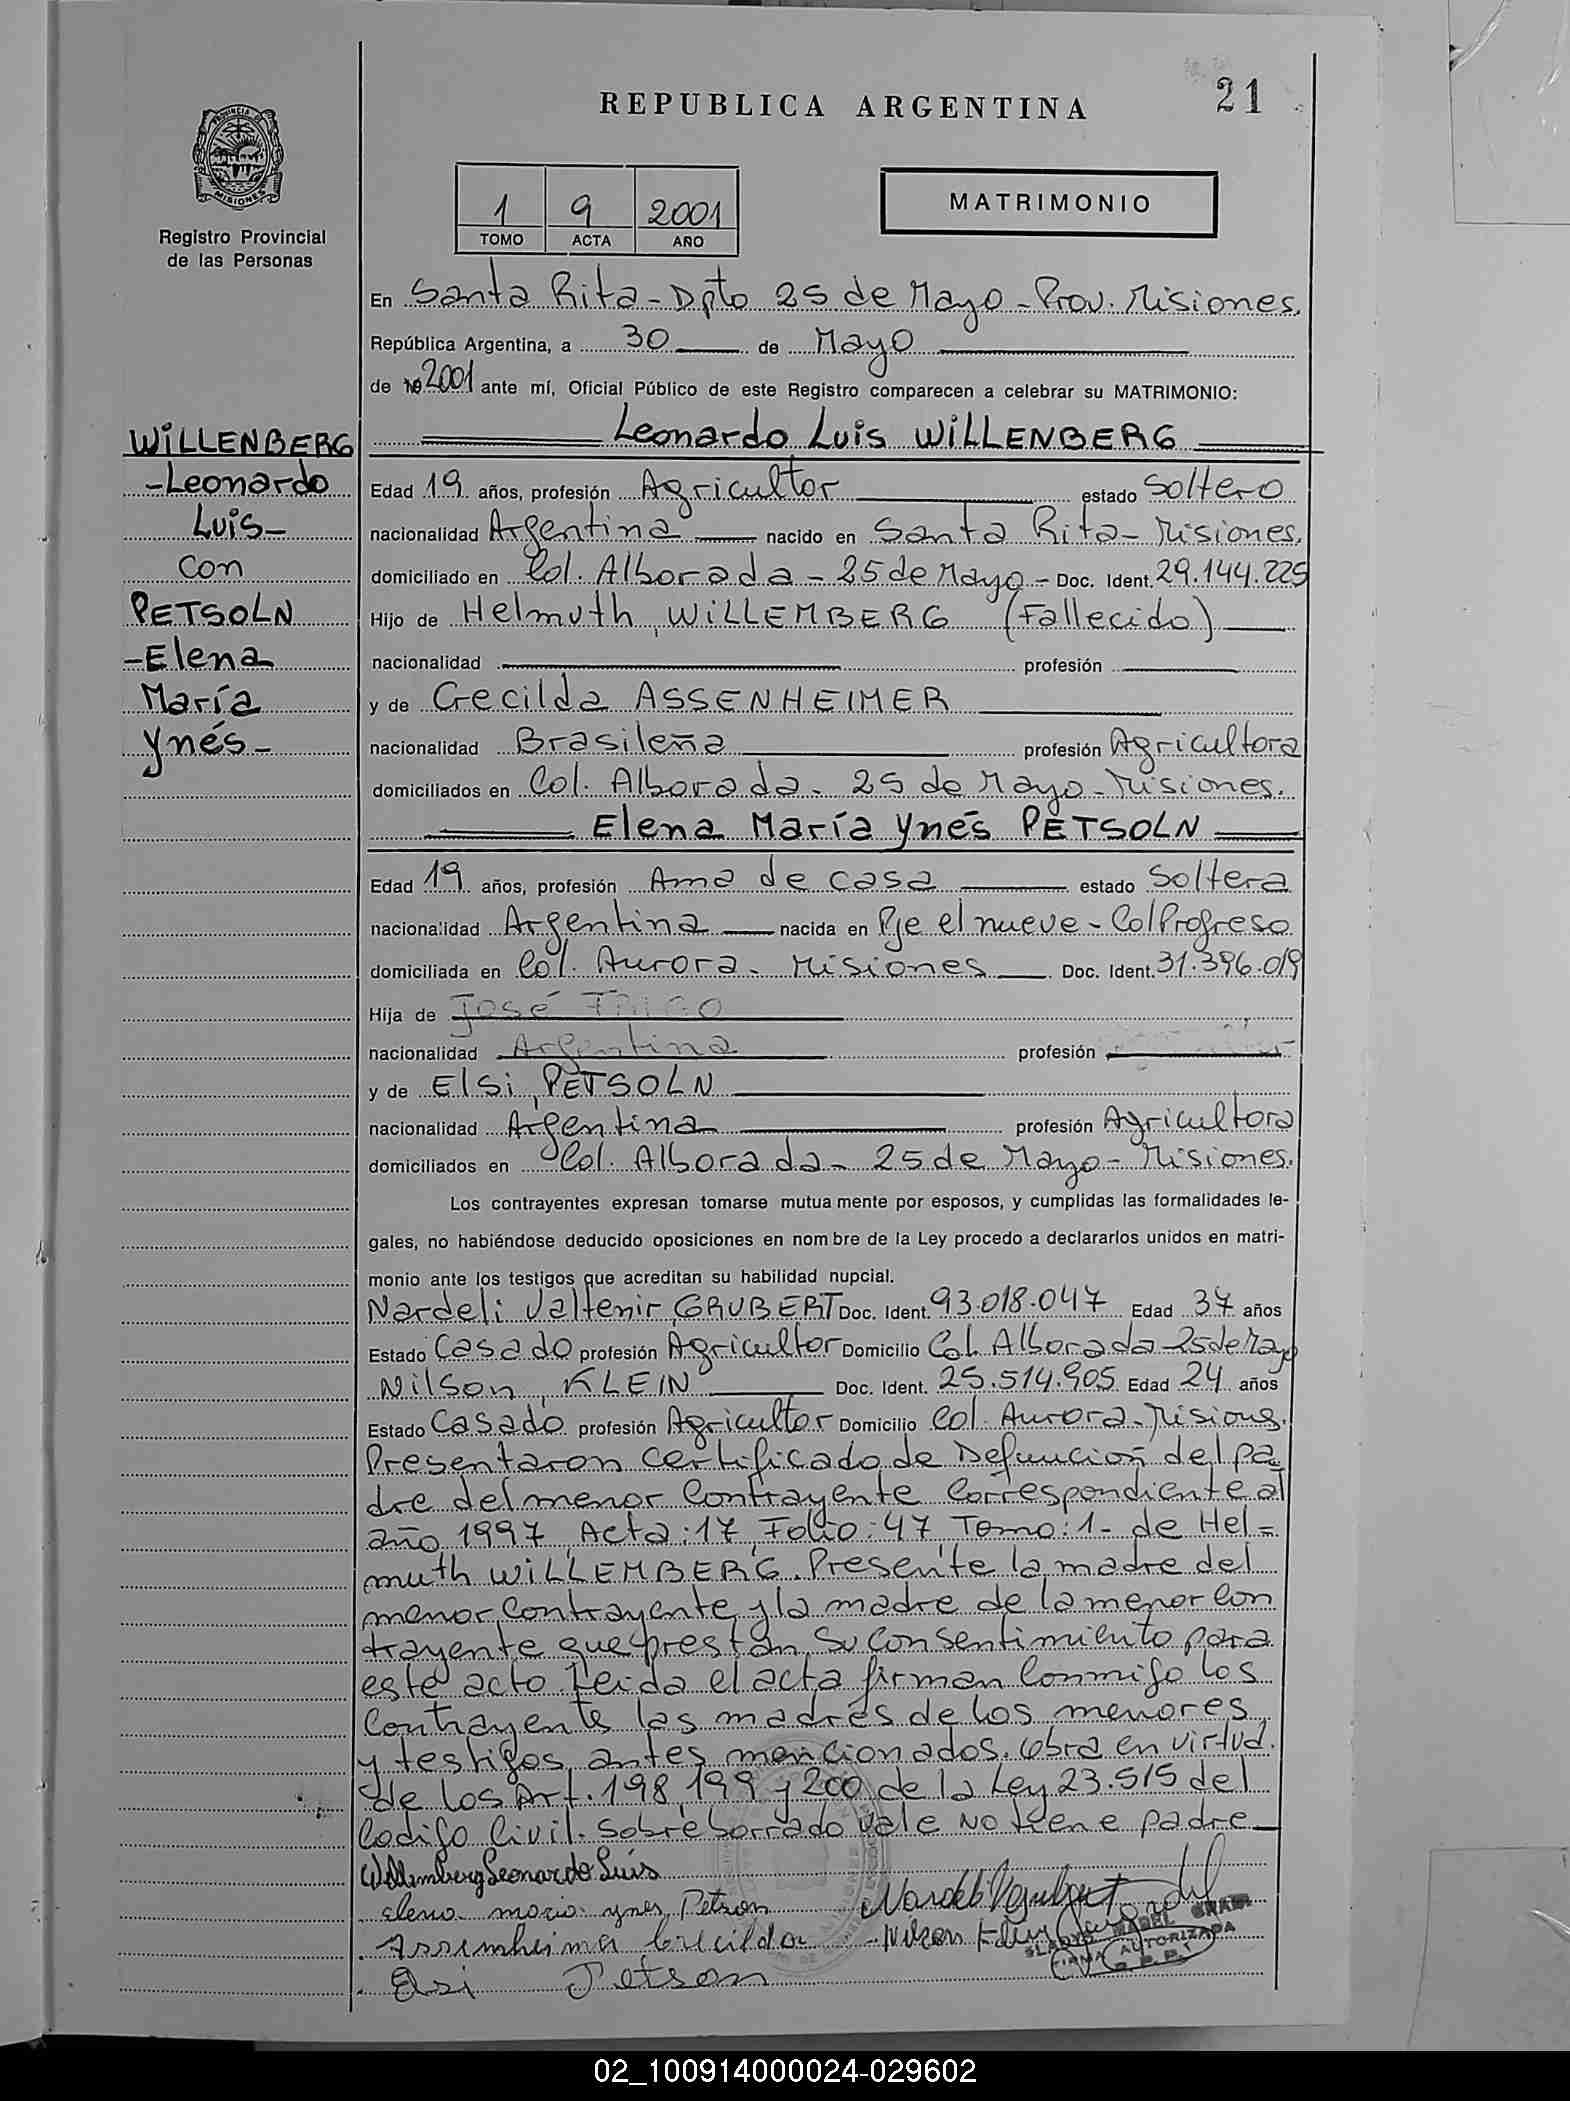 REPUBLICA ARGENTINA
21
PROVINCIA DE
MISIONES
Registro Provincial
de las Personas
1 9 2001
TOMO ACTA AÑO
MATRIMONIO
En Santa Rita - Dpto 25 de Mayo - Prov. Misiones.
República Argentina, a 30 de Mayo
de 2001 ante mí, Oficial Público de este Registro comparecen a celebrar su MATRIMONIO:
WILLENBERG
-Leonardo
Luis-
con
PETSOLN
-Elena
María
Ynés-
Leonardo Luis WILLENBERG
Edad 19 años, profesión Agricultor estado Soltero
nacionalidad Argentina nacido en Santa Rita - Misiones.
domiciliado en Col. Alborada - 25 de Mayo - Doc. Ident. 29.144.225
Hijo de Helmuth, WILLEMBERG (Fallecido)
nacionalidad profesión
y de Crecilda ASSENHEIMER
nacionalidad Brasileña profesión Agricultora
domiciliados en Col. Alborada - 25 de Mayo - Misiones.
Elena María Ynés PETSOLN
Edad 19 años, profesión Ama de casa estado Soltera
nacionalidad Argentina nacida en Pje el nueve - Col Progreso
domiciliada en Col. Aurora - Misiones Doc. Ident. 31.396.019
Hija de José
nacionalidad Argentina profesión
y de Elsi, PETSOLN
nacionalidad Argentina profesión Agricultora
domiciliados en Col. Alborada - 25 de Mayo - Misiones.
Los contrayentes expresan tomarse mutua mente por esposos, y cumplidas las formalidades le-
gales, no habiéndose deducido oposiciones en nom bre de la Ley procedo a declararlos unidos en matri-
monio ante los testigos que acreditan su habilidad nupcial.
Nardeli Valtenir, GRUBERT Doc. Ident. 93.018.047 Edad 37 años
Estado Casado profesión Agricultor Domicilio Col. Alborada 25 de Mayo
Nilson, KLEIN Doc. Ident. 25.514.905 Edad 24 años
Estado Casado profesión Agricultor Domicilio Col. Aurora - Misiones.
Presentaron Certificado de Defunción del pa
dre del menor Contrayente Correspondiente al
año 1997, Acta: 17, Folio: 47 Tomo: 1 - de Hel=
muth WILLEMBERG. Presente la madre del
menor Contrayente y la madre de la menor Con
trayente que prestan su Consentimiento para
este acto. Leida el acta firman Conmigo los
Contrayentes las madres de los menores
y testigos antes mencionados. Obra en virtud
de los Art. 198, 199 y 200 de la Ley 23.515 del
Codigo Civil. Sobre borrado Vale No tiene padre
Willemberg Leonardo Luis
elena maria ynes Petson
Assenheimer Crecilda
Elsi Petson
GLADYS MABEL
FIRMA AUTORIZADA
02_100914000024-029602